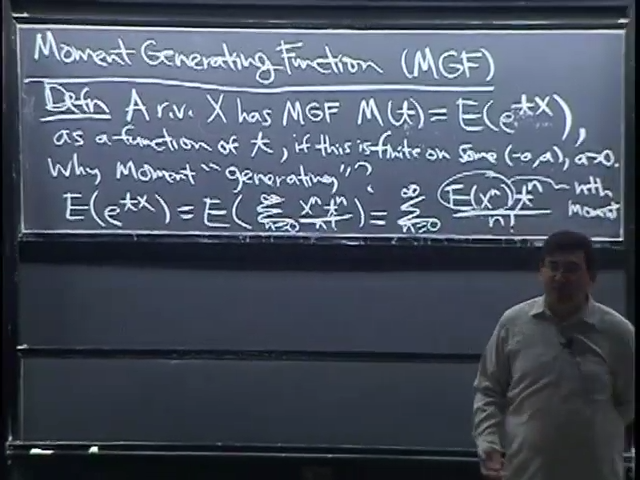 Moment Generating Function (MGF)
Defn A r.v. X has MGF M(t) = E(e^{tX}),
as a function of t, if this is finite on some (-a,a), a>0.
Why moment "generating"?
E(e^{tX}) = E(∑_{n=0}^{∞} X^n t^n / n!) = ∑_{n=0}^{∞} E(X^n) t^n / n!
nth
moment